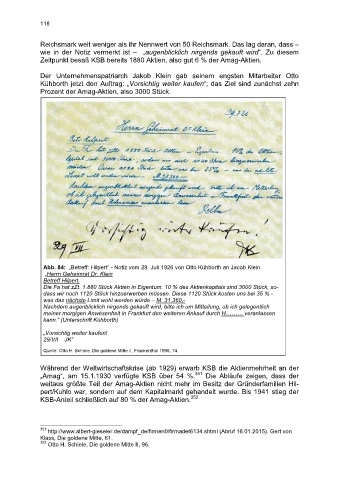 118
Reichsmark weit weniger als ihr Nennwert von 50 Reichsmark. Das lag daran, dass –
wie in der Notiz vermerkt ist – „augenblicklich nirgends gekauft wird". Zu diesem
Zeitpunkt besaß KSB bereits 1880 Aktien, also gut 6 % der Amag-Aktien.
Der Unternehmenspatriarch Jakob Klein gab seinem engsten Mitarbeiter Otto
Kühborth jetzt den Auftrag: „Vorsichtig weiter kaufen"; das Ziel sind zunächst zehn
Prozent der Amag-Aktien, also 3000 Stück.
29.7.26
Herrn Geheimrat Dr Klein
Vorsichtig weiter kaufen!
29/VII JK
Abb. 84: „Betreff: Hilpert" - Notiz vom 29. Juli 1926 von Otto Kühborth an Jacob Klein.
„Herrn Geheimrat Dr. Klein
Betreff Hilpert.
Die Fa hat zZt. 1.880 Stück Aktien in Eigentum. 10 % des Aktienkapitals sind 3000 Stück, so-
dass wir noch 1120 Stück hinzuerwerben müssen. Diese 1120 Stück kosten uns bei 35 % -
was das nächste Limit wohl werden würde – M. 31.360,-
Nachdem augenblicklich nirgends gekauft wird, bitte um Mitteilung, ob ich gelegentlich
meiner morgigen Anwesenheit in Frankfurt den weiteren Ankauf durch H......... veranlassen
kann." (Unterschrift Kühborth)
„Vorsichtig weiter kaufen!
29/VII JK"
Quelle: Otto H. Schiele, Die goldene Mitte I, Frankenthal 1996, 74.
Während der Weltwirtschaftskrise (ab 1929) erwarb KSB die Aktienmehrheit an der
„Amag", am 15.1.1930 verfügte KSB über 54 %.351 Die Abläufe zeigen, dass der
weitaus größte Teil der Amag-Aktien nicht mehr im Besitz der Gründerfamilien Hil-
pert/Kuhlo war, sondern auf dem Kapitalmarkt gehandelt wurde. Bis 1941 stieg der
KSB-Anteil schließlich auf 80 % der Amag-Aktien.352
351 http://www.albert-gieseler.de/dampf_de/firmen0/firmadet6134.shtml (Abruf 16.01.2015). Gert von
Klass, Die goldene Mitte, 61.
352 Otto H. Schiele, Die goldene Mitte II, 96.